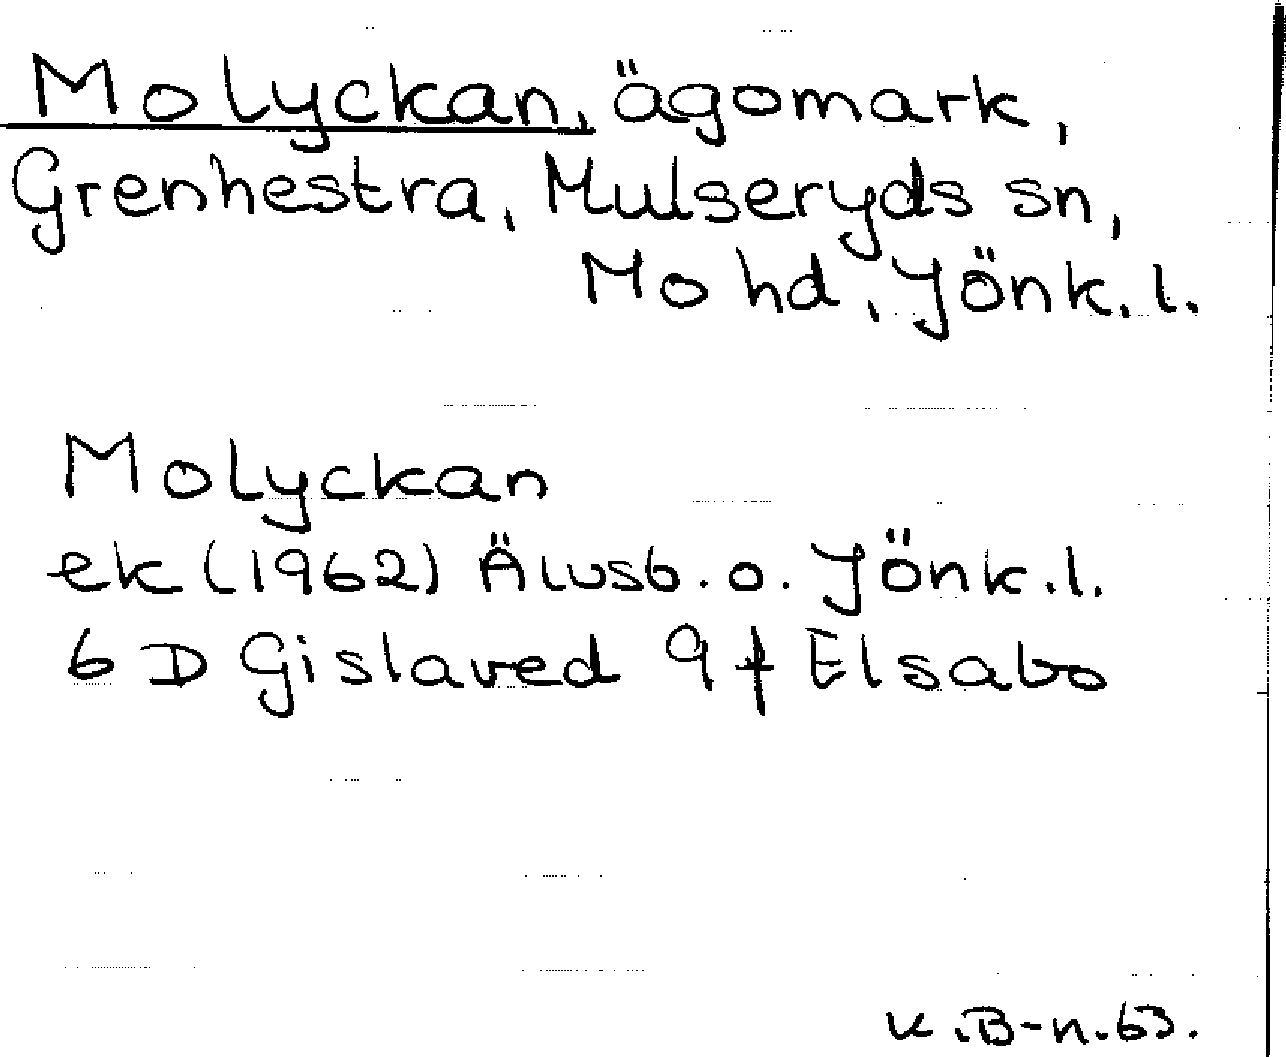 Molyckan, ägomark,
Grenhestra, Mulseryds sn,
Mo hd, Jönk. l.
Molyckan
ek (1962) Älvsb. o. Jönk. l.
6 D Gislaved 9 f Elsabo
K. B-n. 63.